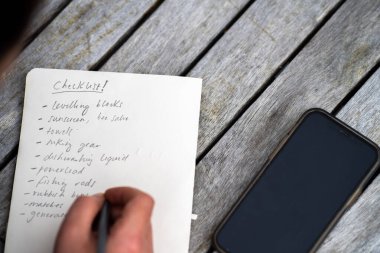 Checklist!
- levelling blocks
- sunscreen,
- towels
- hiking gear
- dishwashing liquid
- powerlead
- fishing rods
- rubbish
- matches
- genera